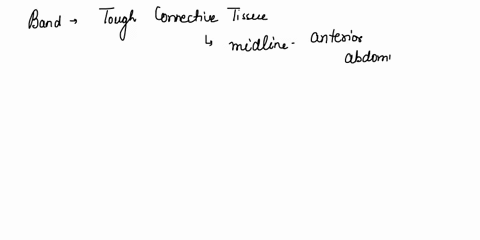 Band → Tough Connective Tissue
↳ midline - anterior
abdomi